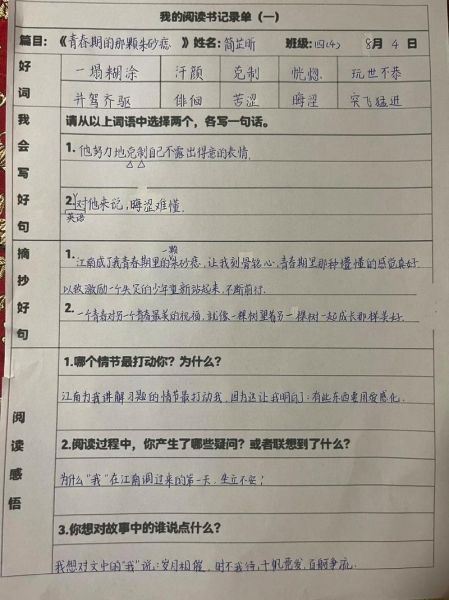 我的阅读书记录单（一）
篇目：《青春期的那颗朱砂痣》 姓名：简芷昕 班级：四(4) 8月4日
好词
一塌糊涂 汗颜 克制 恍惚 玩世不恭
并驾齐驱 俳徊 苦涩 晦涩 突飞猛进
我会写好句
请从以上词语中选择两个，各写一句话。
1. 他努力地克制自己不露出得意的表情
2. 英语对他来说，晦涩难懂.
摘抄好句
1. 江南成了我青春期里的一颗朱砂痣，让我刻骨铭心，青春期里那种懵懂的感觉真好
以致激励一个失足的少年重新站起来，不断前行.
2. 一个青春对另一个青春最美的祝福，就像一棵树望着另一棵树一起成长那样美好.
阅读感悟
1.哪个情节最打动你？为什么？
江南为我讲解习题的情节最打动我，因为这让我明白了：有些东西要用爱感化.
2.阅读过程中，你产生了哪些疑问？或者联想到了什么？
为什么“我”在江南调过来的第一天，坐立不安？
3.你想对故事中的谁说点什么？
我想对文中的“我”说：岁月相催，时不我待，千帆竞发，百舸争流.